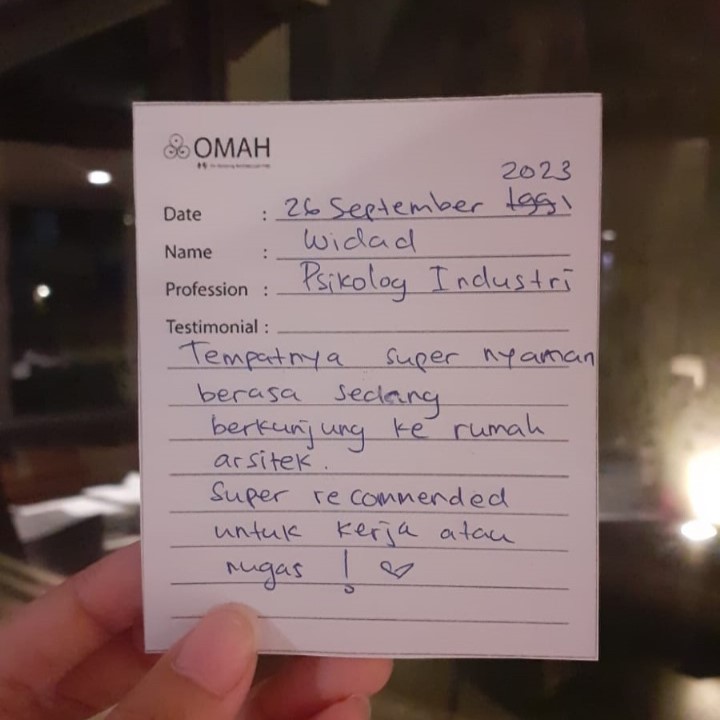 OMAH
2023
Date : 26 September 1991
Name : Widad
Profession : Psikolog Industri
Testimonial :
Tempatnya super nyaman
berasa sedang
berkunjung ke rumah
arsitek.
Super recommended
untuk kerja atau
nugas ! ♡